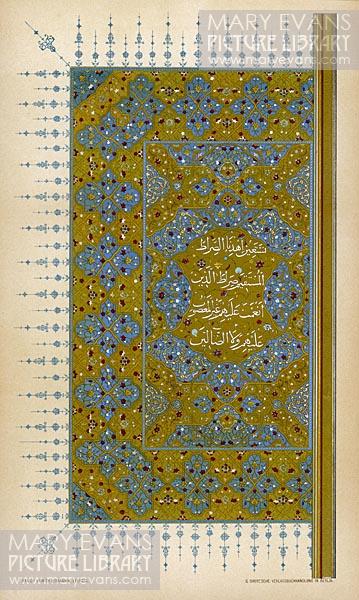 MARY EVANS
PICTURE LIBRARY
www.maryevans.com
نستعين اهدنا الصراط
المستقيم صراط الذين
أنعمت عليهم غير المغضوب
عليهم ولا الضالين
G. GROTE'SCHE VERLAGSBUCHHANDLUNG IN BERLIN.
MARY EVANS
PICTURE LIBRARY
www.maryevans.com